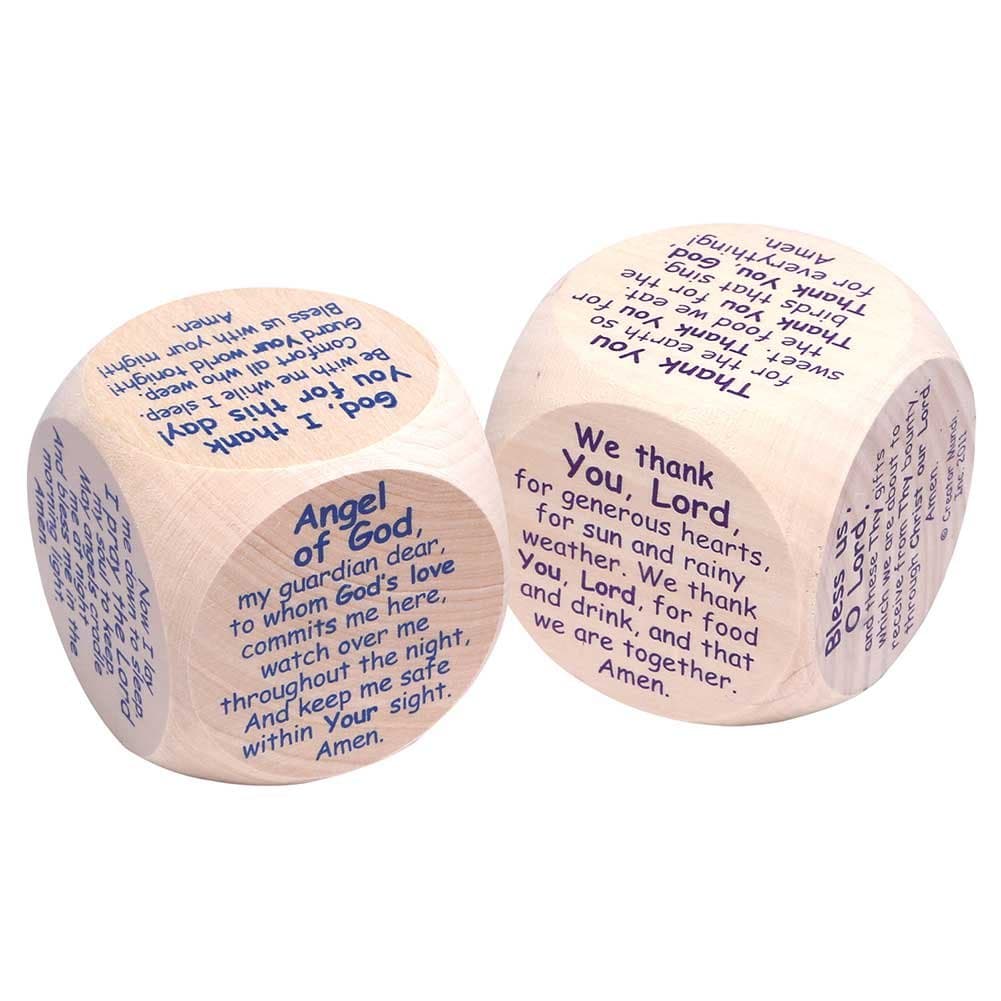 God, I thank
You for this day!
Be with me while I sleep.
Comfort all who weep.
Guard Your world tonight!
Bless us with your might!
Amen.
Now I lay
me down to sleep.
I pray the Lord
my soul to keep.
May angels cradle
me at night
And bless me in the
morning light.
Amen.
Angel
of God,
my guardian dear,
to whom God's love
commits me here,
watch over me
throughout the night,
And keep me safe
within Your sight.
Amen.
Thank You
for the earth so
sweet. Thank You for
the food we eat.
Thank You for the
birds that sing.
Thank You, God,
for everything!
Amen.
We thank
You, Lord,
for generous hearts,
for sun and rainy
weather. We thank
You, Lord, for food
and drink, and that
we are together.
Amen.
Bless us,
O Lord,
and these Thy gifts
which we are about to
receive from Thy bounty,
through Christ our Lord.
Amen.
© Creator Mundi,
Inc. 2011